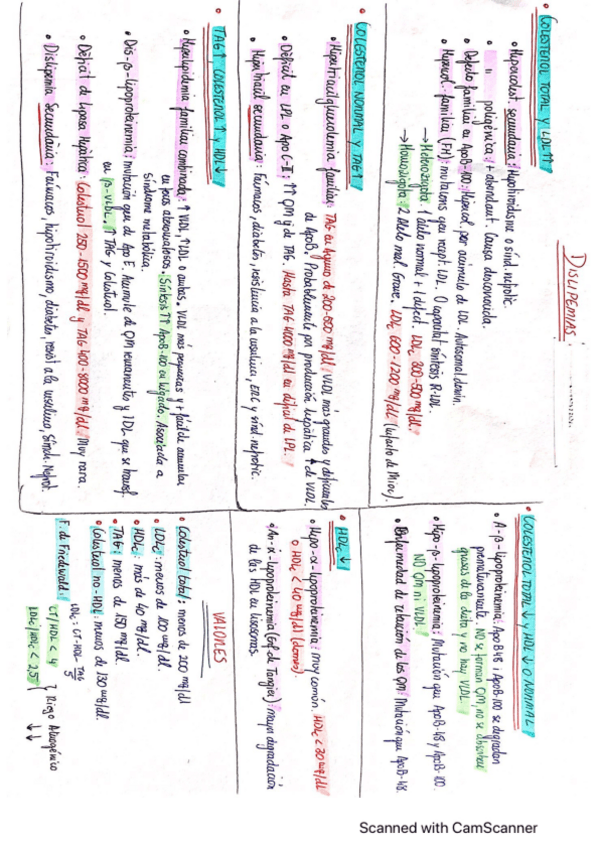 DISLIPEMIAS
• COLESTEROL TOTAL Y LDL↑↑
• Hipercolest. secundaria: Hipotiroidismo o sínd. nefrótic.
• " poligénica: + abundant. Causa desconocida.
• Defecto familiar en ApoB-100: Hipercol. por acúmulo de LDL. Autosomal domin.
• Hipercol. familiar (HF): mutaciones gen recept. LDL. O incapacitat síntesis R-LDL.
→ Heterozigota: 1 alelo normal + 1 defect. LDL 300-500 mg/dl
→ Homozigota: 2 alelo mal. Grave. LDL 600-1200 mg/dl (infarto de Mioc).
• COLESTEROL NORMAL Y TAG↑
• Hipertriacilglicerolemia familiar: TAG en ayunas de 200-500 mg/dl: VLDL más grandes y deficientes
de ApoB. Probablemente por producción hepática ↑ de VLDL.
• Dèficit en LPL o Apo C-II: ↑↑ QM y de TAG. Hasta TAG 4000 mg/dl en dèficit de LPL.
• Hipertriacil secundaria: Fármacos, diabetis, resistencia a la insulina, ERC y sínd. nefròtic.
• TAG↑, COLESTEROL ↑ y HDL↓
• Hiperlipidemia familiar combinada: ↑ VLDL, ↑LDL o ambas. VLDL más pequeñas y + fácil de acumular
en focos ateromatosos. Síntesis ↑↑ ApoB-100 en hígado. Asociada a
síndrome metabólico.
• Dis-β-lipoproteinemia: mutación gen de Apo E. Acúmulo de QM remanentes y IDL que se transf.
en β-VLDL. ↑ TAG y Colesterol.
• Dèficit de lipasa Hepática: Colesterol 250-1500 mg/dl y TAG 400-8000 mg/dl. Muy rara.
• Dislipemia Secundaria: Fármacos, hipotiroidismo, diabetes, resist a la insulina, Síndr. Nefrot.
• COLESTEROL TOTAL ↓ y HDL ↓ O NORMAL
• A-β-lipoproteinemia: ApoB48 i ApoB-100 se degradan
prematuramente. NO se forman QM, no se absorben
grasas de la dieta y no hay VLDL.
• Hipo-β-lipoproteinemia: Mutación gen ApoB-48 y ApoB-100.
NO QM ni VLDL.
• Enfermedad de retención de los QM: Mutación gen ApoB-48.
• HDLc↓
• Hipo-α-lipoproteinemia: Muy común. HDLc < 30 mg/dl
o HDLc < 40 mg/dl (dones).
• An-α-lipoproteinemia (Enf de Tangier): mayor degradación
de las HDL en lisosomas.
VALORES
• Colesterol total: menos de 200 mg/dl
• LDLc: menos de 100 mg/dL
• HDLc: más de 40 mg/dl.
• TAG: menos de 150 mg/dl.
• Colesterol no-HDL: menos de 130 mg/dl.
F. de Friedewald: LDLc = CT-HDL- TAG/5
CT/HDL < 4
LDLc/HDLc < 2,5 } Riesgo Aterogénico ↓↓
Scanned with CamScanner